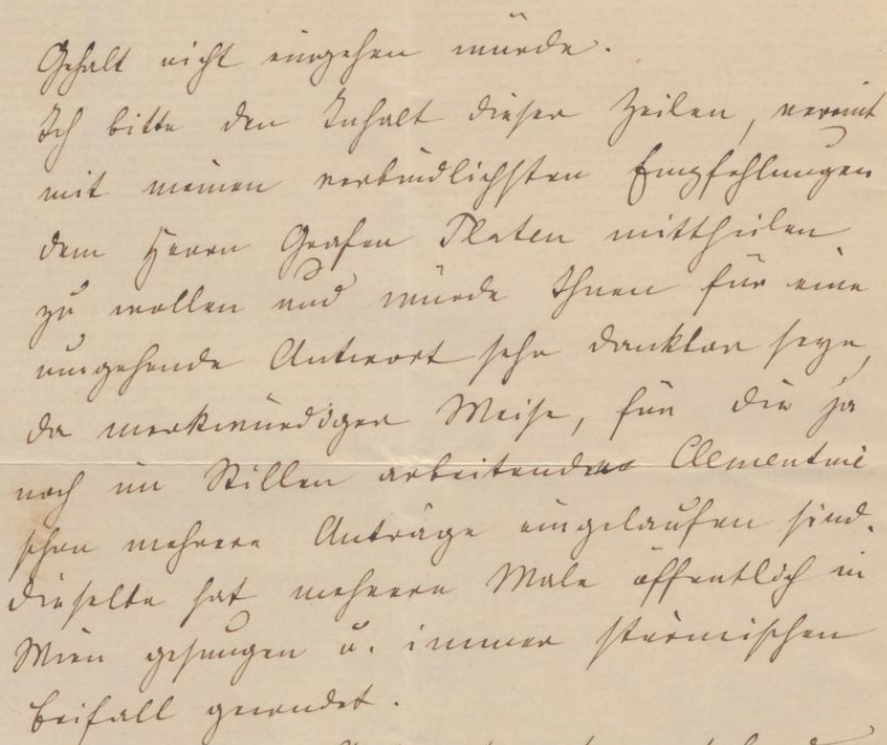 Gehalt nicht eingehen würde.
Ich bitte den Inhalt dieser Zeilen, vereint
mit meinen verbindlichsten Empfehlungen
dem Herrn Grafen Platen mittheilen
zu wollen und würde Ihnen für eine
umgehende Antwort sehr dankbar seyn,
da merkwürdiger Weise, für die ja
noch im Stillen arbeitende Clementine
schon mehrere Anträge eingelaufen sind.
Dieselbe hat mehrere Male öffentlich in
Wien gesungen u. immer stürmischen
Beifall geerndet.